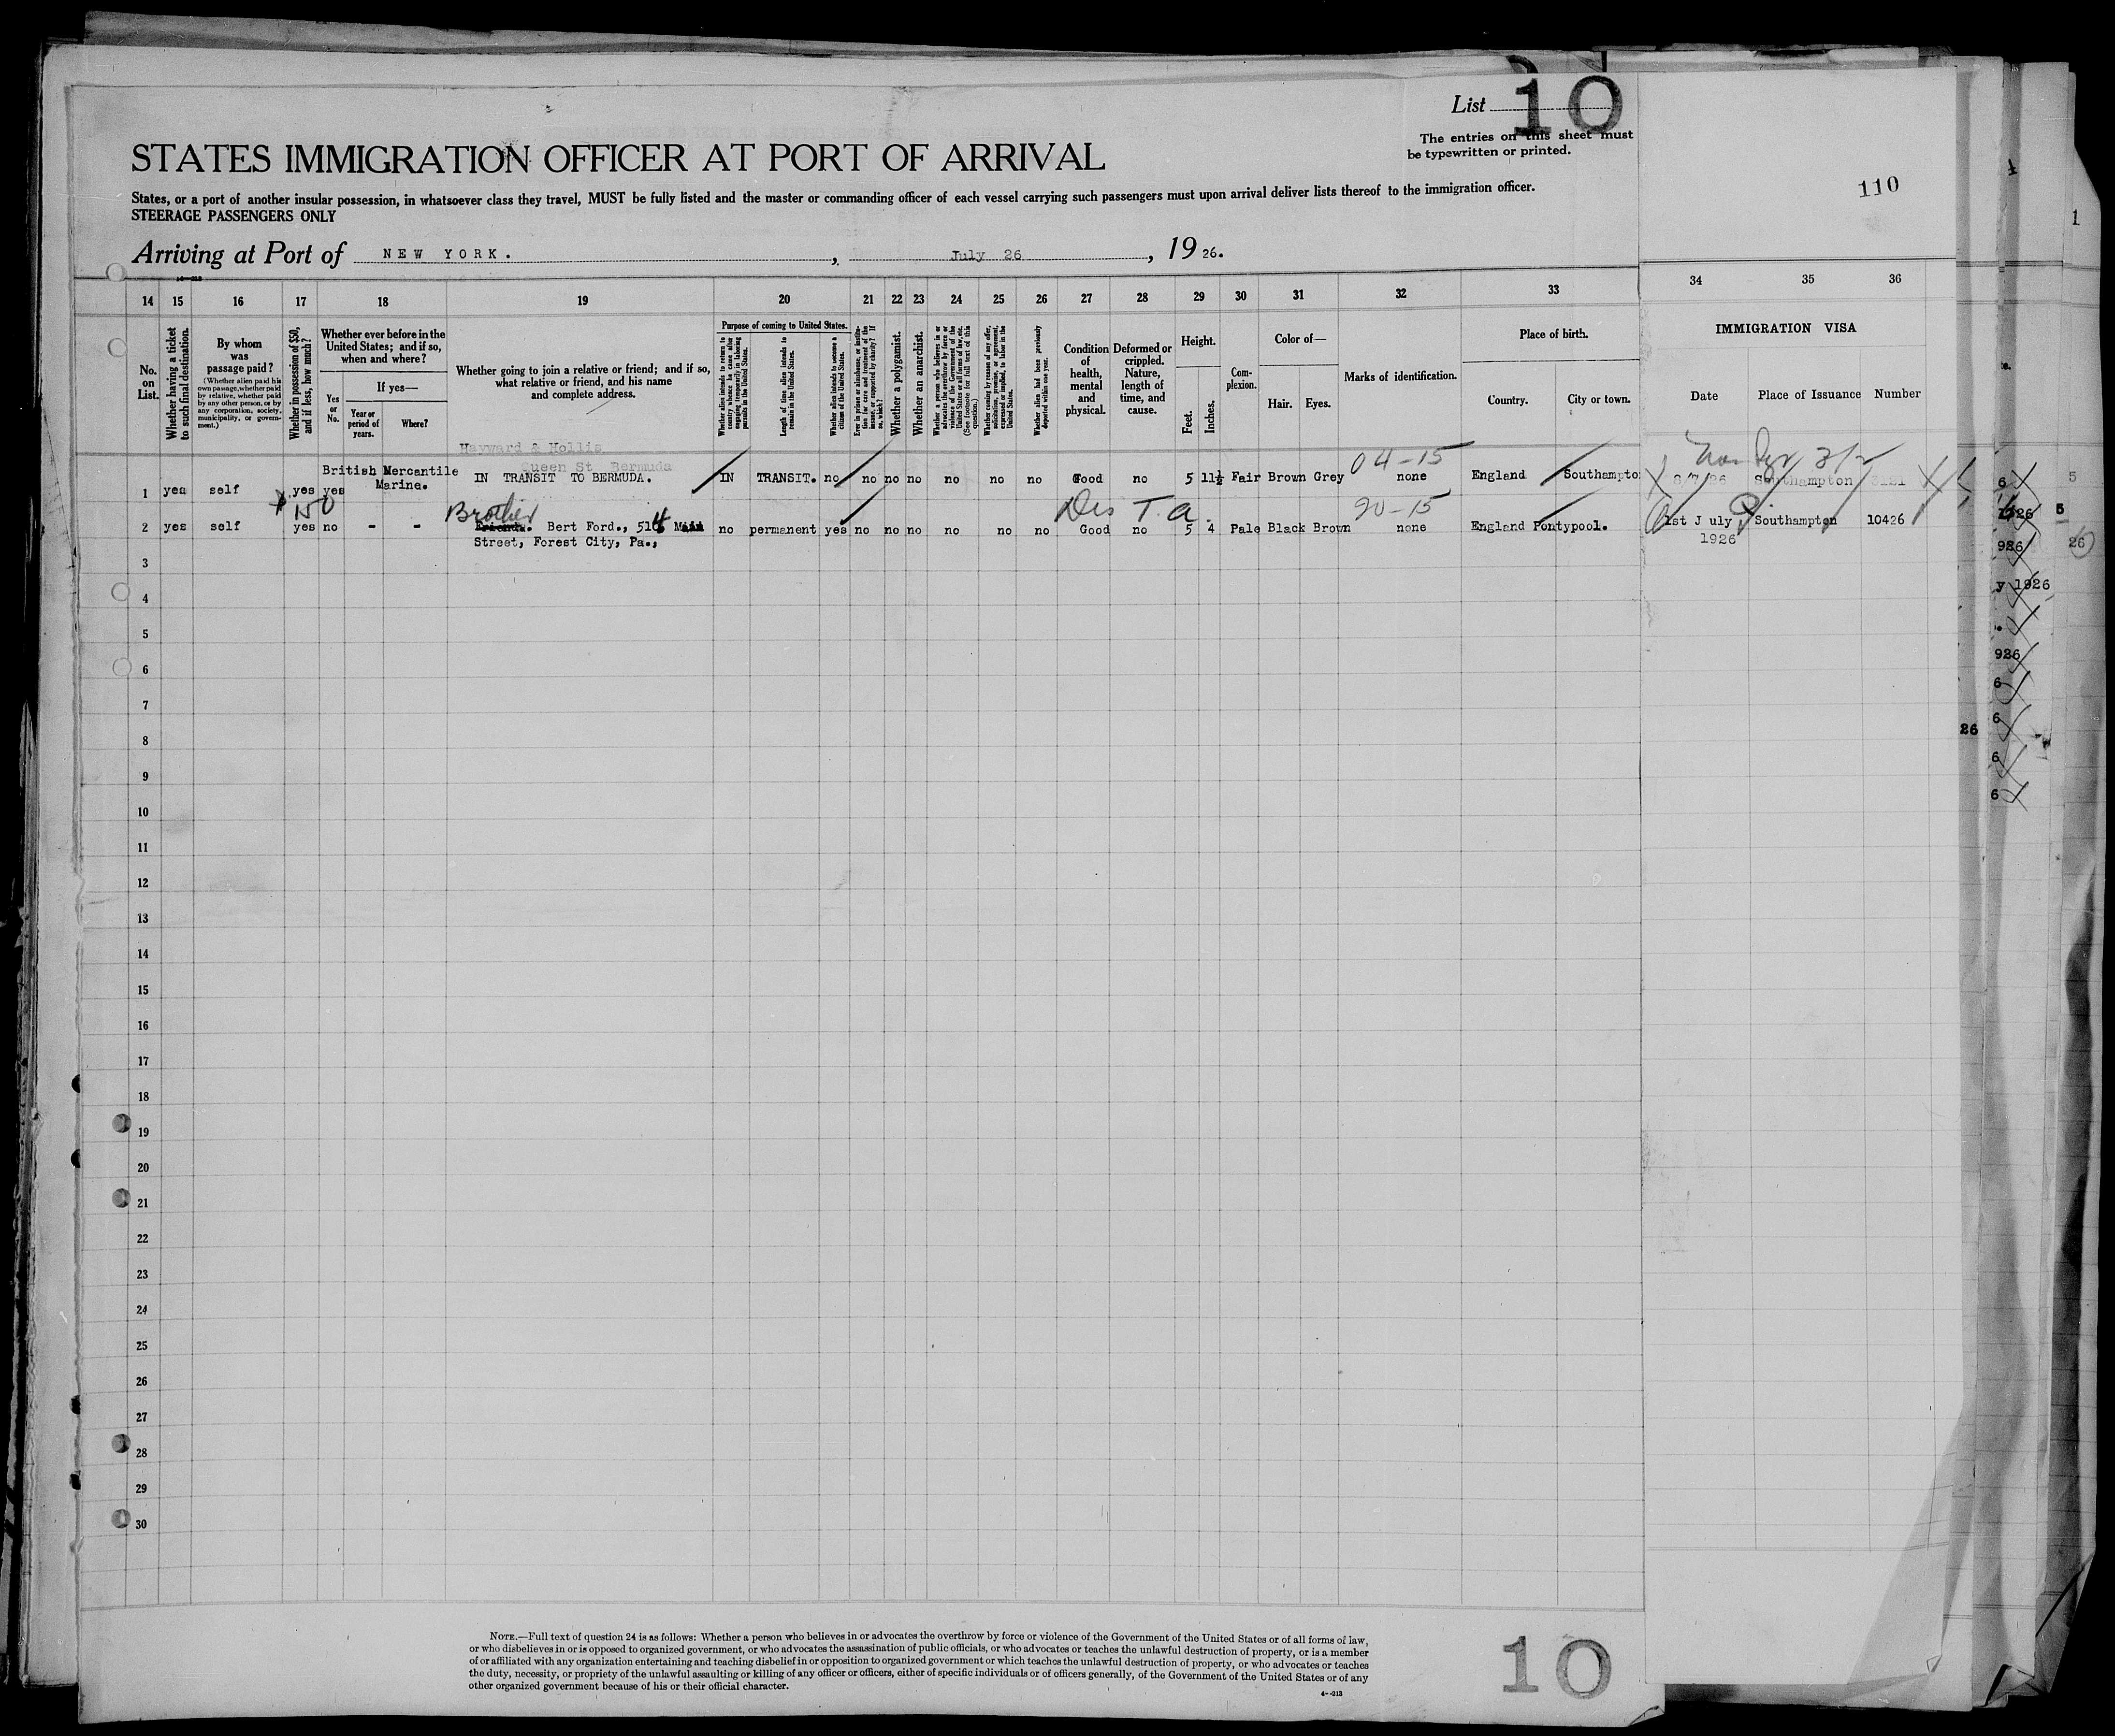 List 10
The entries on this sheet must
be typewritten or printed.
110
STATES IMMIGRATION OFFICER AT PORT OF ARRIVAL
States, or a port of another insular possession, in whatsoever class they travel, MUST be fully listed and the master or commanding officer of each vessel carrying such passengers must upon arrival deliver lists thereof to the immigration officer.
STEERAGE PASSENGERS ONLY
Arriving at Port of NEW YORK. , July 26 , 19 26.
14 15 16 17 18 19 20 21 22 23 24 25 26 27 28 29 30 31 32 33 34 35 36
No. on List.
Whether having a ticket to such final destination.
By whom was passage paid?
(Whether alien paid his own passage, whether paid by relative, whether paid by any other person, or by any corporation, society, municipality, or government.)
Whether in possession of $50, and if less, how much?
Whether ever before in the United States; and if so, when and where?
Yes or No.
If yes—
Year or period of years.
Where?
Whether going to join a relative or friend; and if so, what relative or friend, and his name and complete address.
Purpose of coming to United States.
Whether alien intends to return to country whence he came after engaging temporarily in laboring pursuits in the United States.
Length of time alien intends to remain in the United States.
Whether alien intends to become a citizen of the United States.
Ever in prison or almshouse, or institution for care and treatment of the insane, or supported by charity? If so, which?
Whether a polygamist.
Whether an anarchist.
Whether a person who believes in or advocates the overthrow by force or violence of the Government of the United States or all forms of law, etc. (See footnote for full text of this question.)
Whether coming by reason of any offer, solicitation, promise, or agreement, expressed or implied, to labor in the United States.
Whether alien had been previously deported within one year.
Condition of health, mental and physical.
Deformed or crippled. Nature, length of time, and cause.
Height.
Feet. Inches.
Complexion.
Color of—
Hair. Eyes.
Marks of identification.
Place of birth.
Country. City or town.
IMMIGRATION VISA
Date Place of Issuance Number
Hayward & Hollis
Queen St Bermuda
04-15
1 yes self yes yes British Mercantile Marine. IN TRANSIT TO BERMUDA. IN TRANSIT. no no no no no no no Good no 5 11½ Fair Brown Grey none England Southampton
Southampton
150 Brother Des T.a. 20-15
2 yes self yes no - - Bert Ford., 514 Main no permanent yes no no no no no no Good no 5 4 Pale Black Brown none England Pontypool. 1st July 1926 Southampton 10426
Street, Forest City, Pa.,
3
4
5
6
7
8
9
10
11
12
13
14
15
16
17
18
19
20
21
22
23
24
25
26
27
28
29
30
NOTE.—Full text of question 24 is as follows: Whether a person who believes in or advocates the overthrow by force or violence of the Government of the United States or of all forms of law,
or who disbelieves in or is opposed to organized government, or who advocates the assassination of public officials, or who advocates or teaches the unlawful destruction of property, or is a member
of or affiliated with any organization entertaining and teaching disbelief in or opposition to organized government or which teaches the unlawful destruction of property, or who advocates or teaches
the duty, necessity, or propriety of the unlawful assaulting or killing of any officer or officers, either of specific individuals or of officers generally, of the Government of the United States or of any
other organized government because of his or their official character.
4--213
10